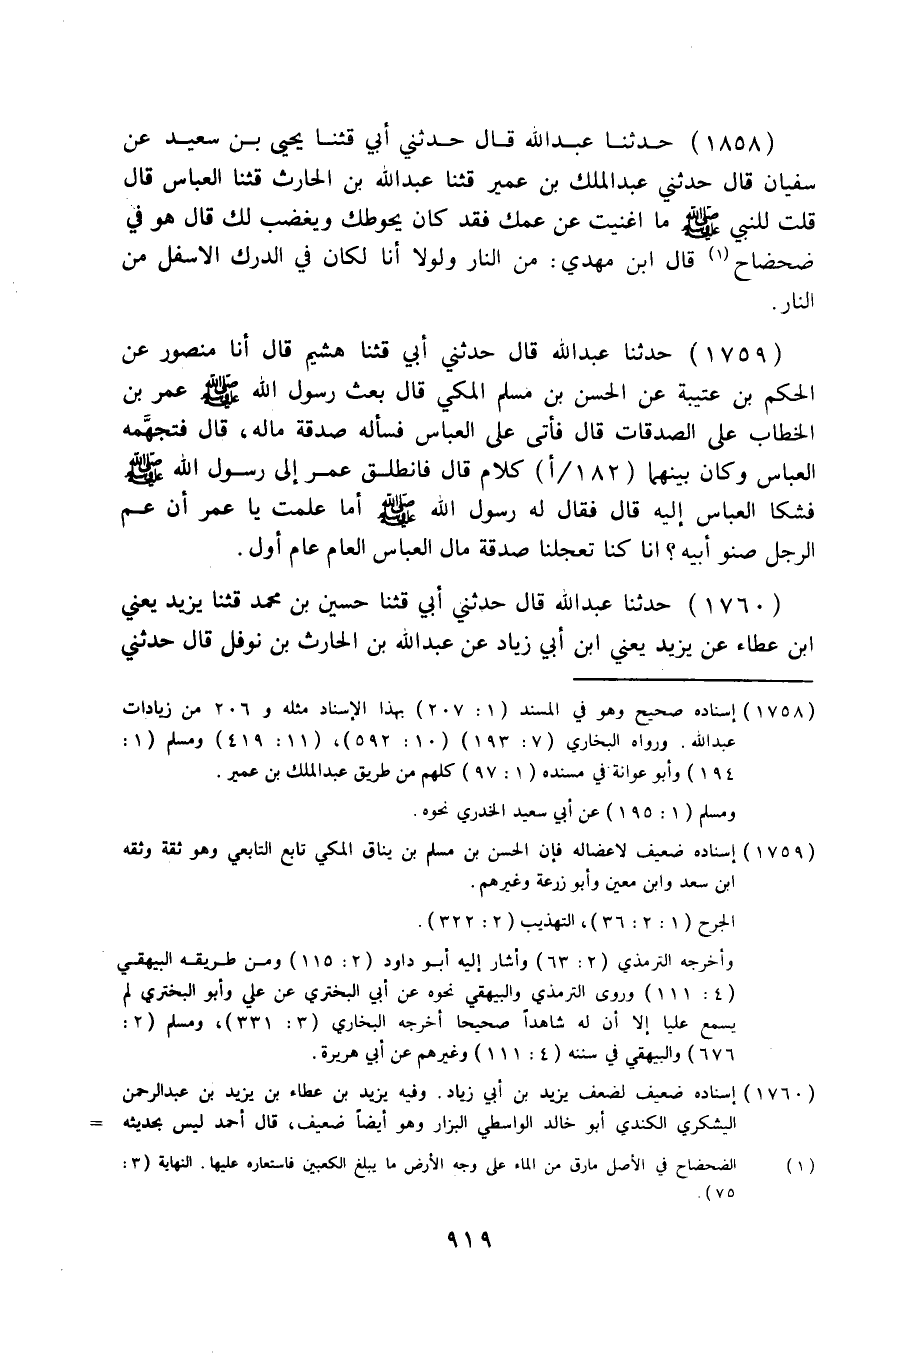 (١٨٥٨) حـدثنـا عبـدالله قـال حـدثني أبي قثنـا يحيى بـن سعيـد عن
سفيان قال حدثني عبدالملك بن عمير قثنا عبدالله بن الحارث قثنا العباس قال
قلت للنبي ﷺ ما اغنيت عن عمك فقد كان يحوطك ويغضب لك قال هو في
ضحضاح (١) قال ابن مهدي: من النار ولولا أنا لكان في الدرك الاسفل من
النار.
(١٧٥٩) حدثنا عبدالله قال حدثني أبي قثنا هشيم قال أنا منصور عن
الحكم بن عتيبة عن الحسن بن مسلم المكي قال بعث رسول الله ﷺ عمر بن
الخطاب على الصدقات قال فأتى على العباس فسأله صدقة ماله، قال فتجهَّمه
العباس وكان بينهما (١٨٢/أ) كلام قال فانطلـق عمـر إلى رسـول الله ﷺ
فشكا العباس إليه قال فقال له رسول الله ﷺ أما علمت يا عمر أن عـم
الرجل صنو أبيه؟ انا كنا تعجلنا صدقة مال العباس العام عام أول.
(١٧٦٠) حدثنا عبدالله قال حدثني أبي قثنا حسين بن محمد قثنا يزيد يعني
ابن عطاء عن يزيد يعني ابن أبي زياد عن عبدالله بن الحارث بن نوفل قال حدثني
(١٧٥٨) إسناده صحيح وهو في المسند (١: ٢٠٧) بهذا الإسناد مثله و ٢٠٦ من زيادات
عبدالله. ورواه البخاري (٧: ١٩٣) (١٠: ٥٩٢)، (١١: ٤١٩) ومسلم (١:
١٩٤) وأبو عوانة في مسنده (١: ٩٧) كلهم من طريق عبدالملك بن عمير.
ومسلم (١: ١٩٥) عن أبي سعيد الخدري نحوه.
(١٧٥٩) إسناده ضعيف لاعضاله فإن الحسن بن مسلم بن يناق المكي تابع التابعي وهو ثقة وثقه
ابن سعد وابن معين وأبو زرعة وغيرهم.
الجرح (١: ٢: ٣٦)، التهذيب (٢: ٣٢٢).
وأخرجه الترمذي (٢: ٦٣) وأشار إليه أبـو داود (٢: ١١٥) ومـن طـريقـه البيهقـي
(٤: ١١١) وروى الترمذي والبيهقي نحوه عن أبي البختري عن علي وأبو البختري لم
يسمع عليا إلا أن له شاهداً صحيحا أخرجه البخاري (٣: ٣٣١)، ومسلم (٢:
٦٧٦) والبيهقي في سننه (٤: ١١١) وغيرهم عن أبي هريرة.
(١٧٦٠) إسناده ضعيف لضعف يزيد بن أبي زياد. وفيه يزيد بن عطاء بن يزيد بن عبدالرحمن
اليشكري الكندي أبو خالد الواسطي البزار وهو أيضاً ضعيف، قال أحمد ليس بحديثه =
(١) الضحضاح في الأصل مارق من الماء على وجه الأرض ما يبلغ الكعبين فاستعاره عليها. النهاية (٣:
٧٥).
٩١٩